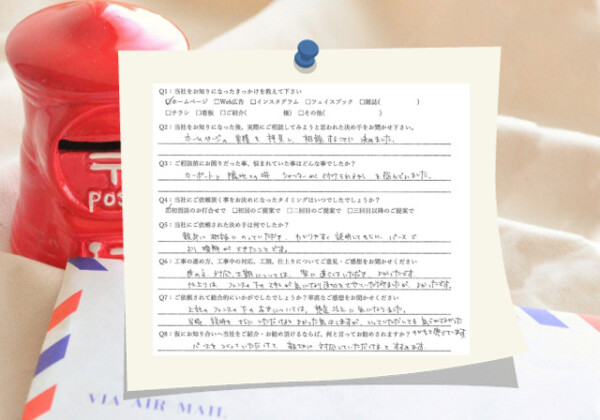 Q1：当社をお知りになったきっかけを教えて下さい
☑ホームページ □Web広告 □インスタグラム □フェイスブック □雑誌( )
□チラシ □看板 □ご紹介( 様) □その他( )
Q2：当社をお知りになった後、実際にご相談してみようと思われた決め手をお聞かせ下さい。
ホームページの実績を拝見し、相談することに決めました。
Q3：ご相談前にお困りだった事、悩まれていた事はどんな事でしたか？
カーポートと隣地との シャッターが 付けられるか を悩んでいました。
Q4：当社にご依頼頂く事をお決めになったタイミングはいつでしたでしょうか？
☑初回談のお打合せで □初回のご提案で □二回目のご提案で □三回目以降のご提案で
Q5：当社にご依頼された決め手は何でしたか？
親身に相談にのっていただき、わかりやすく説明してもらい、パースで
より理解ができたことです。
Q6：工事の進め方、工事中の対応、工期、仕上りについてご意見・ご感想をお聞かせください
進め方、対応、工期については、 よかったです。
仕上りは、フェンスの下の が気になり ていただけましたが、よかったです。
Q7：ご依頼されて総合的にいかがでしたでしょうか？率直なご感想をお聞かせください
フェンスの下の については、 気になりました。
説明を いただけると よかった気はしますが、
Q8：仮にお知り合いへ当社をご紹介・お勧め頂けるならば、何と言ってお勧めされますか？
パースをつくっていただけて 親切に対応していただけますとすすめます。
POS
VIA AIR MAIL